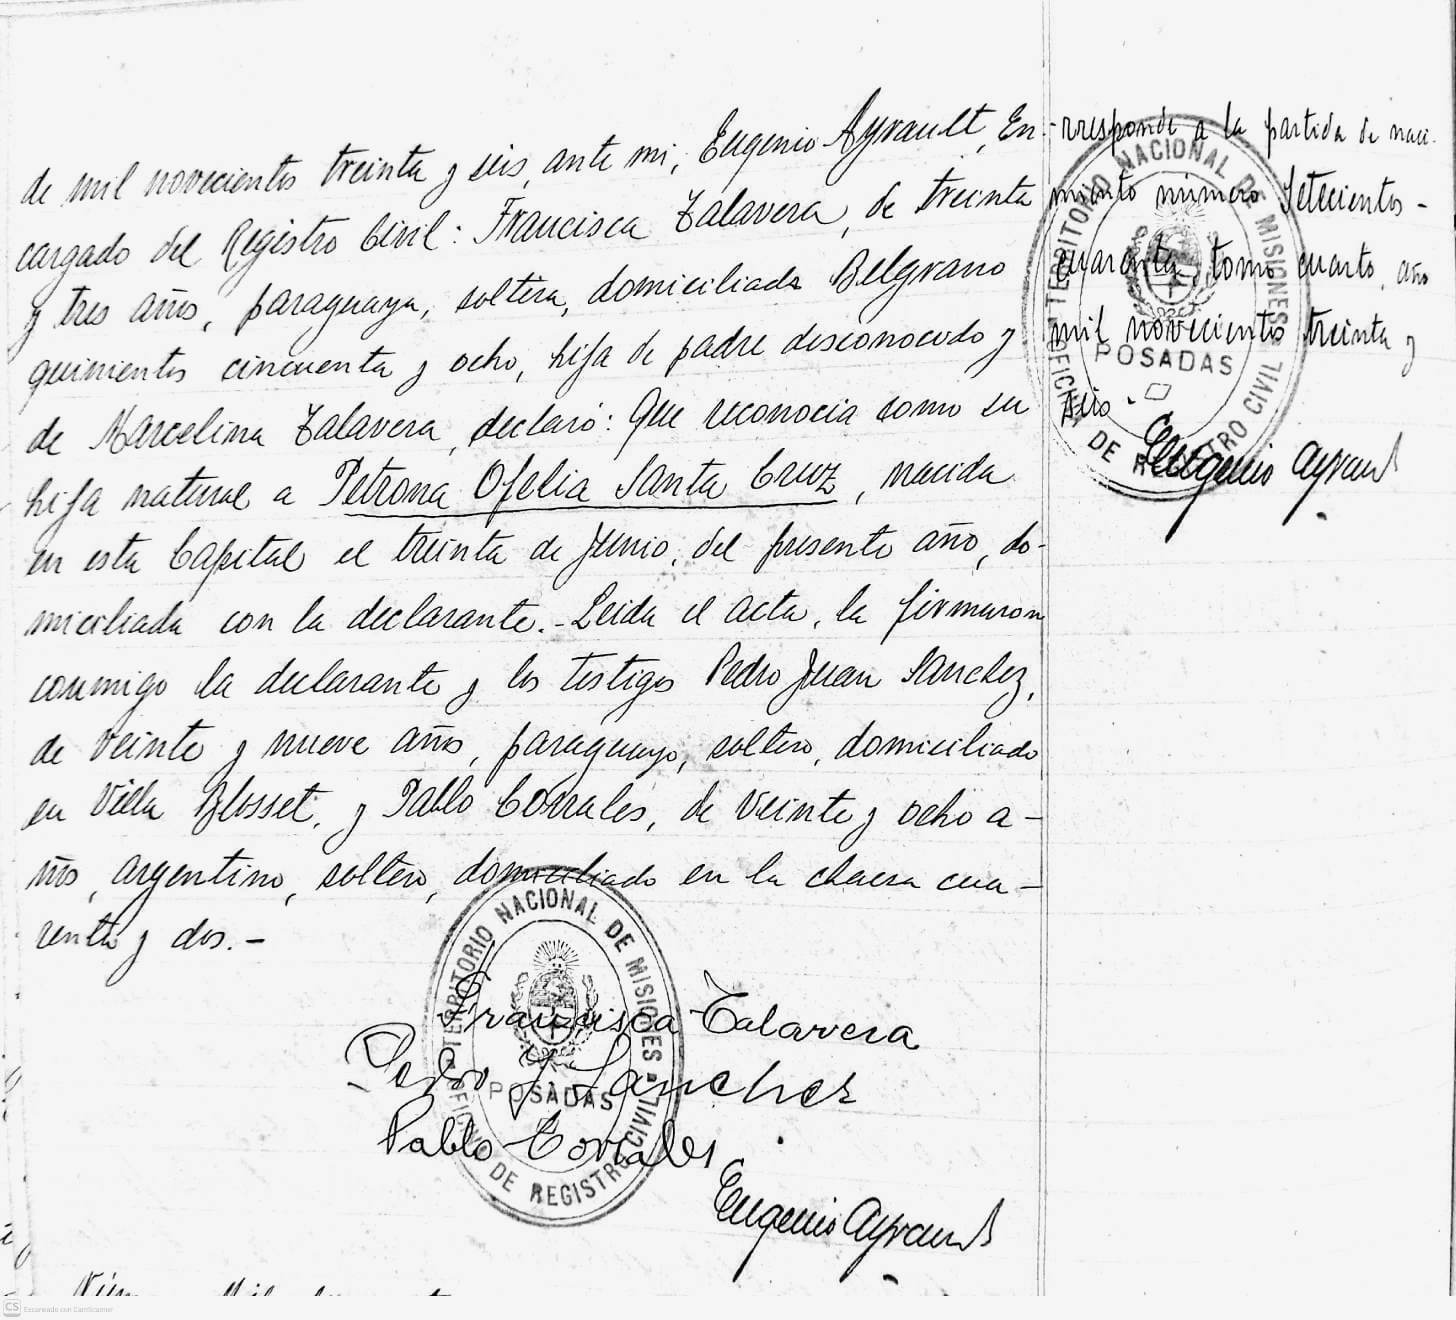 de mil novecientos treinta y seis, ante mi, Eugenio Ayrault, En-
cargado del Registro Civil: Francisca Talavera, de treinta
y tres años, paraguaya, soltera, domiciliada Belgrano
quinientos cincuenta y ocho, hija de padre desconocido y
de Marcelina Talavera, declaró: Que reconocia como su
hija natural a Petrona Ofelia Santa Cruz, nacida
en esta Capital el treinta de Junio, del presente año, do-
miciliada con la declarante.- Leida el acta, la firmaron
conmigo la declarante y los testigos Pedro Juan Sanchez,
de veinte y nueve años, paraguayo, soltero, domiciliado
en Villa Blosset, y Pablo Corrales, de veinte y ocho a-
ños, argentino, soltero, domiciliado en la chacra cua-
renta y dos.-
Francisca Talavera
Pedro J. Sanchez
Pablo Corrales
Eugenio Ayrault
TERRITORIO NACIONAL DE MISIONES
POSADAS
OFICINA DE REGISTRO CIVIL
-rresponde a la partida de naci-
miento número Setecientos-
cuarenta, tomo cuarto, año
mil novecientos treinta y
seis.
Eugenio Ayrault
TERRITORIO NACIONAL DE MISIONES
POSADAS
OFICINA DE REGISTRO CIVIL
CS Escaneado con CamScanner